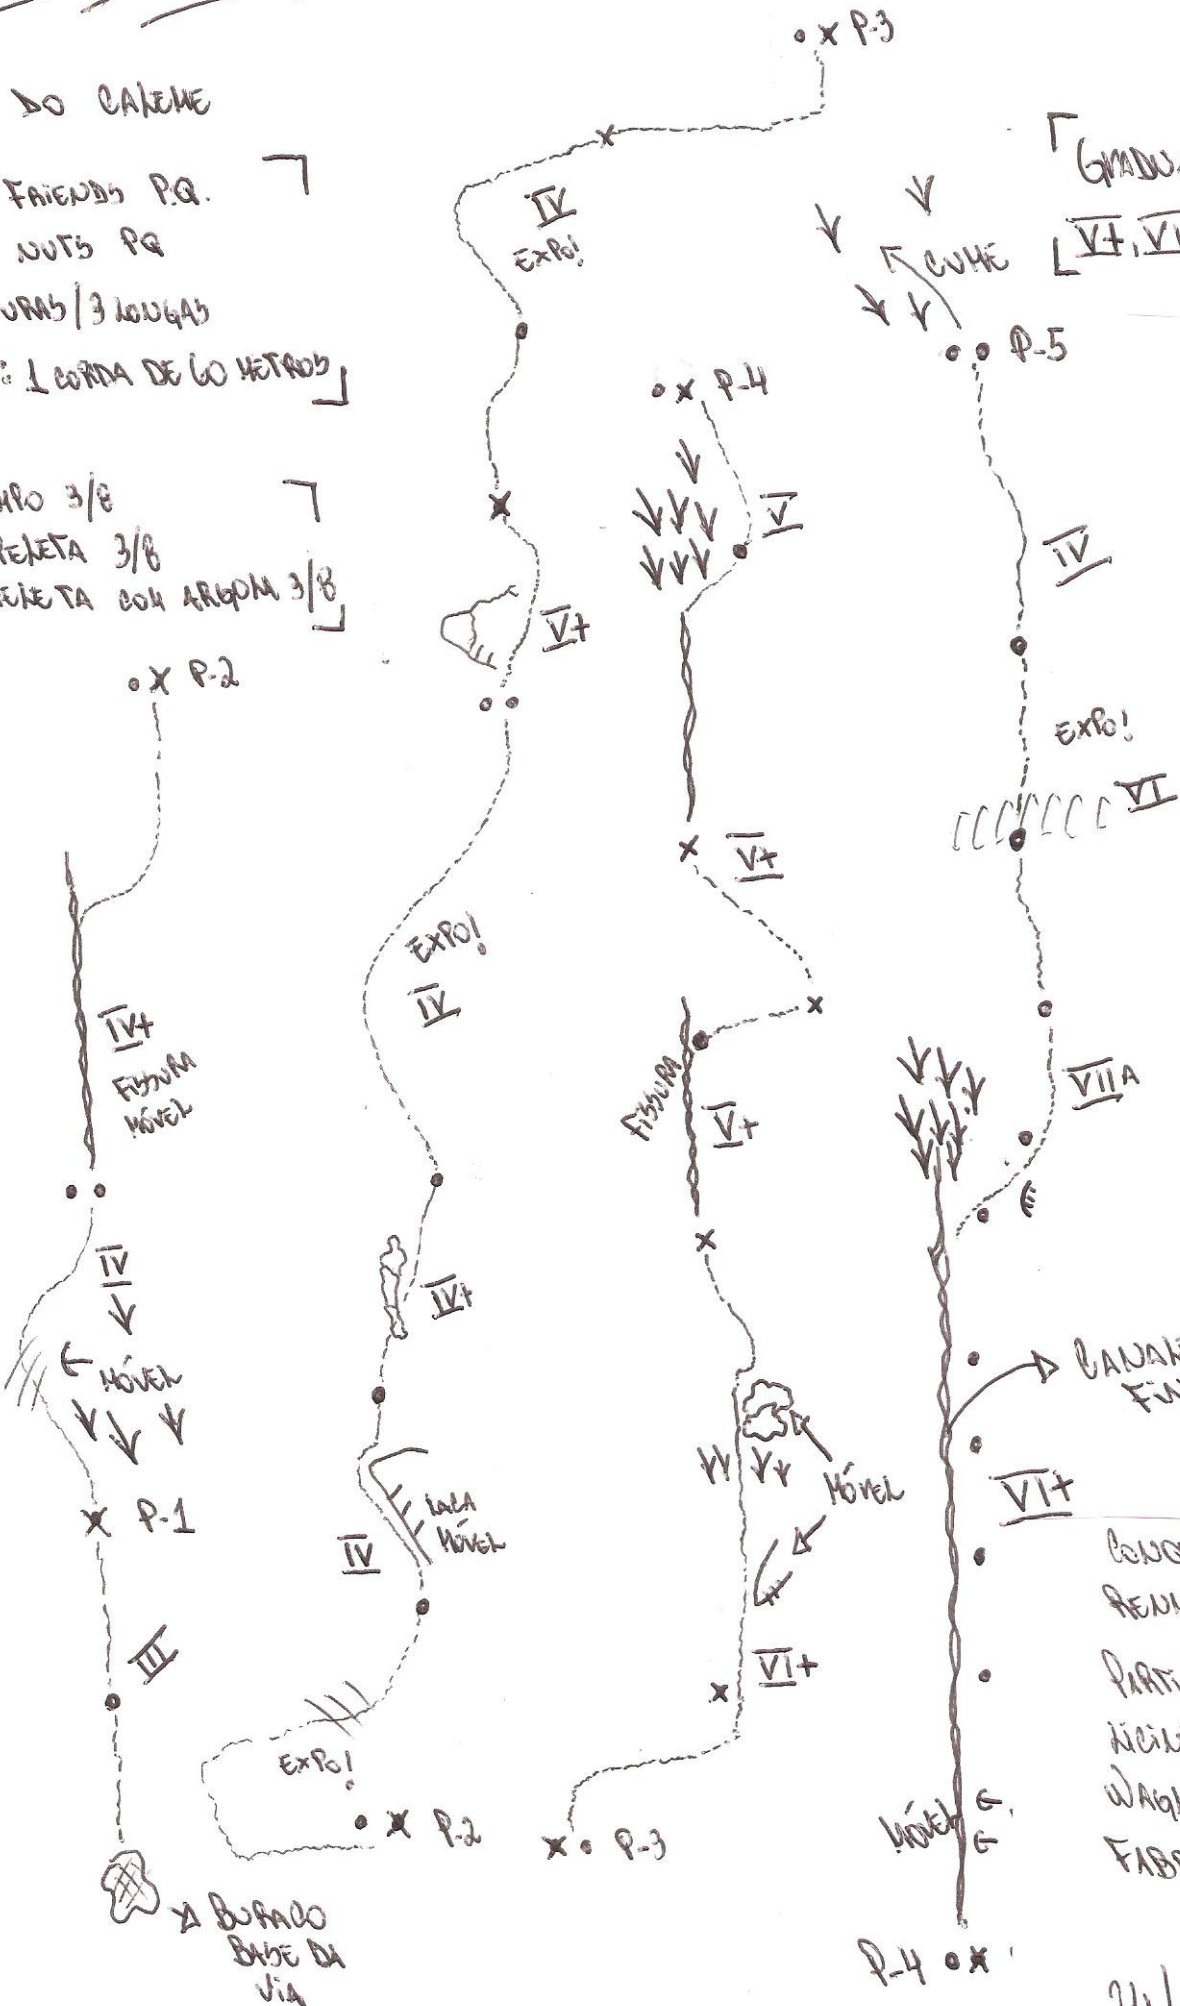 DO CALEME
FRIENDS P.Q.
NUTS PQ
URAS/3 LONGAS
: 1 CORDA DE 60 METROS
MPO 3/8
PELETA 3/8
ELETA COM ARGOLA 3/8
P-2
IV+
FISSURA
MÓVEL
IV
MÓVEL
P-1
III
BURACO
BASE DA
VIA
P-3
IV
EXPO!
V+
EXPO!
IV
IV+
LACA
MÓVEL
IV
EXPO!
P-2
P-4
V
V+
FISSURA
V+
MÓVEL
VI+
P-3
GRADU
V+, VI
CUME
P-5
IV
EXPO!
VI
VIIA
CANAL
FIN
VI+
MÓVEL
P-4
CONQ
REN
PARTI
WAG
FAB